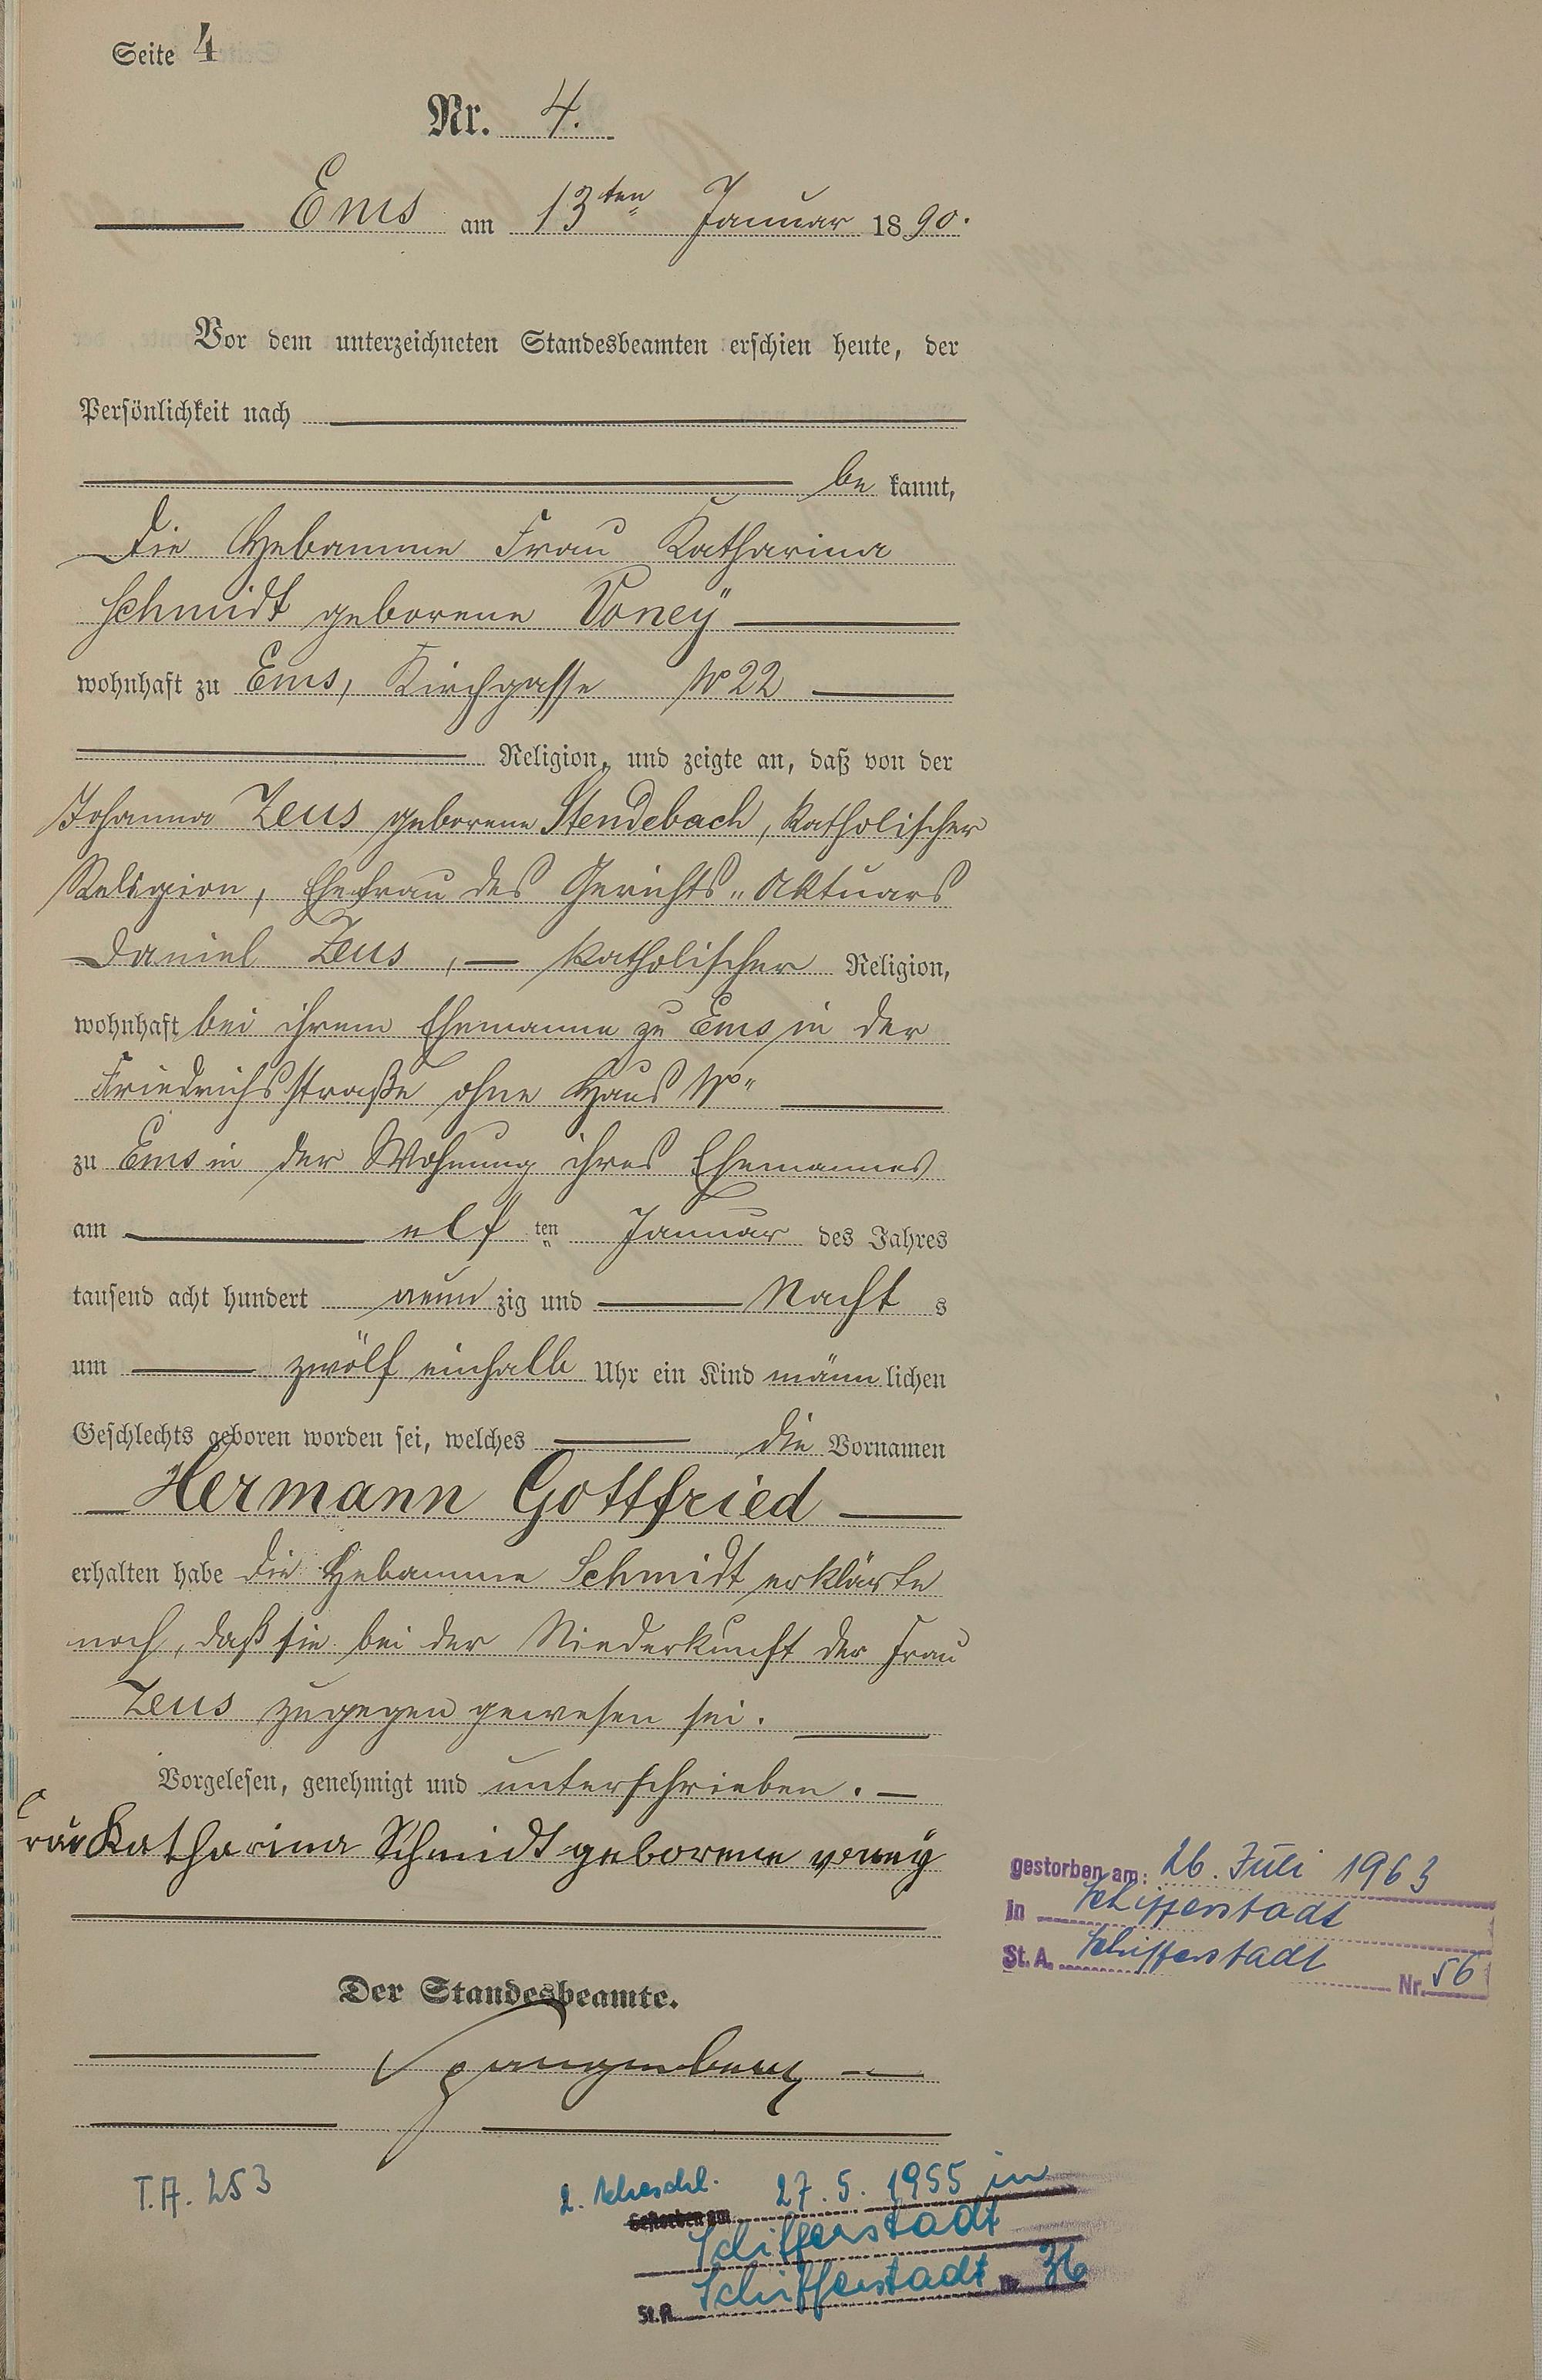 Seite 4
Nr. 4.
Ems am 13ten Januar 1890.
Vor dem unterzeichneten Standesbeamten erschien heute, der
Persönlichkeit nach
bekannt,
die Hebamme Frau Katharina
Schmidt geborene Voneÿ
wohnhaft zu Ems, Kirchgasse No 22
Religion, und zeigte an, daß von der
Johanna Zeus geborene Stendebach, katholischer
Religion, Ehefrau des Gerichts-Aktuars
Daniel Zeus, — katholischer Religion,
wohnhaft bei ihrem Ehemanne zu Ems in der
Friedrichsstraße ohne Haus No
zu Ems in der Wohnung ihres Ehemannes
am elf ten Januar des Jahres
tausend acht hundert neunzig und Nachts
um zwölf einhalb Uhr ein Kind männlichen
Geschlechts geboren worden sei, welches die Vornamen
Hermann Gottfried
erhalten habe die Hebamme Schmidt erklärte
noch, daß sie bei der Niederkunft der Frau
Zeus zugegen gewesen sei.
Vorgelesen, genehmigt und unterschrieben. —
Frau Katharina Schmidt geborene voneÿ
gestorben am: 26. Juli 1963
In Schifferstadt
St. A. Schifferstadt Nr. 56
Der Standesbeamte.
Spangenberg
T.A. 253
2. Eheschl. 27.5.1955 in
Gestorben am
Schifferstadt
St.A. Schifferstadt Nr. 36